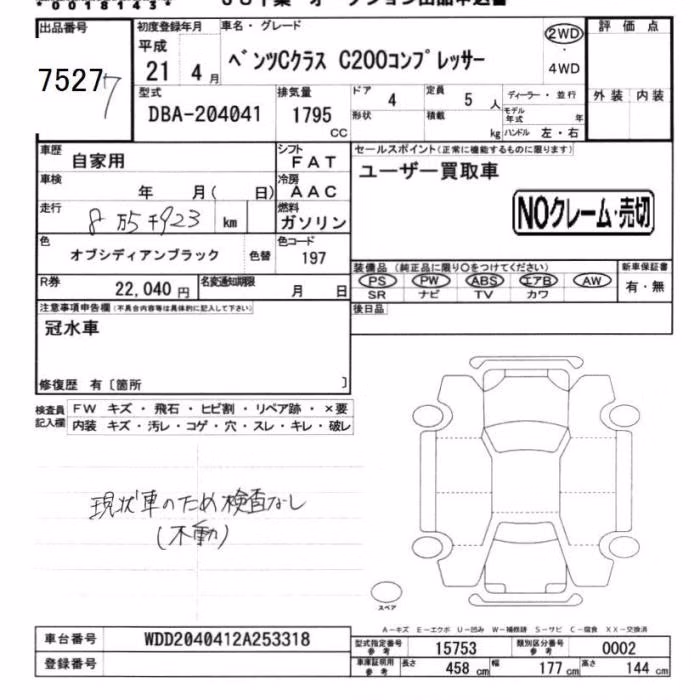 *00181434*
出品番号
75277
初度登録年月
平成
21 4 月
車名・グレード
ベンツCクラス C200コンプレッサー
2WD
4WD
評価点
外装 内装
型式
DBA-204041
排気量
1795
CC
ドア
4
定員
5 人
形状
積載
kg
ディーラー・並行
モデル年式 年
ハンドル 左・右
車歴
自家用
シフト
FAT
車検
年 月( 日)
冷房
AAC
走行
8万5千923 km
燃料
ガソリン
色
オブシディアンブラック
色替
色コード
197
R券
22,040 円
名変通知期限
月 日
セールスポイント(正常に機能するものに限ります)
ユーザー買取車
NOクレーム・売切
装備品 (純正品に限り○をつけてください)
PS PW ABS エアB AW
SR ナビ TV カワ
新車保証書
有・無
後日品
注意事項申告欄(不具合内容等は具体的に記入して下さい)
冠水車
修復歴 有〔箇所 〕
検査員
記入欄
FW キズ・飛石・ヒビ割・リペア跡・×要
内装 キズ・汚レ・コゲ・穴・スレ・キレ・破レ
現状車のため検査なし
(不動)
スペア
A-キズ E-エクボ U-凹み W-補修跡 S-サビ C-腐食 XX-交換済
車台番号
WDD2040412A253318
登録番号
型式指定番号
参考
15753
類別区分番号
参考
0002
車庫証明用
参考
長さ
458 cm
幅
177 cm
高さ
144 cm